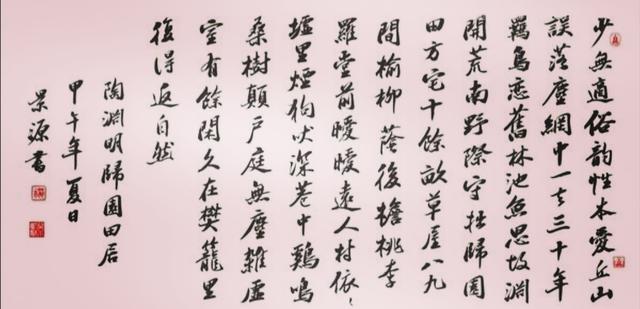 少無適俗韵性本愛丘山
誤落塵網中一去三十年
羈鳥戀舊林池魚思故淵
開荒南野際守拙歸園
田方宅十餘畝草屋八九
間榆柳蔭後檐桃李
羅堂前曖曖遠人村依〻
墟里煙狗吠深巷中鷄鳴
桑樹顛户庭無塵雜虛
室有餘閑久在樊籠里
復得返自然
陶淵明歸園田居
甲午年夏日
景源書